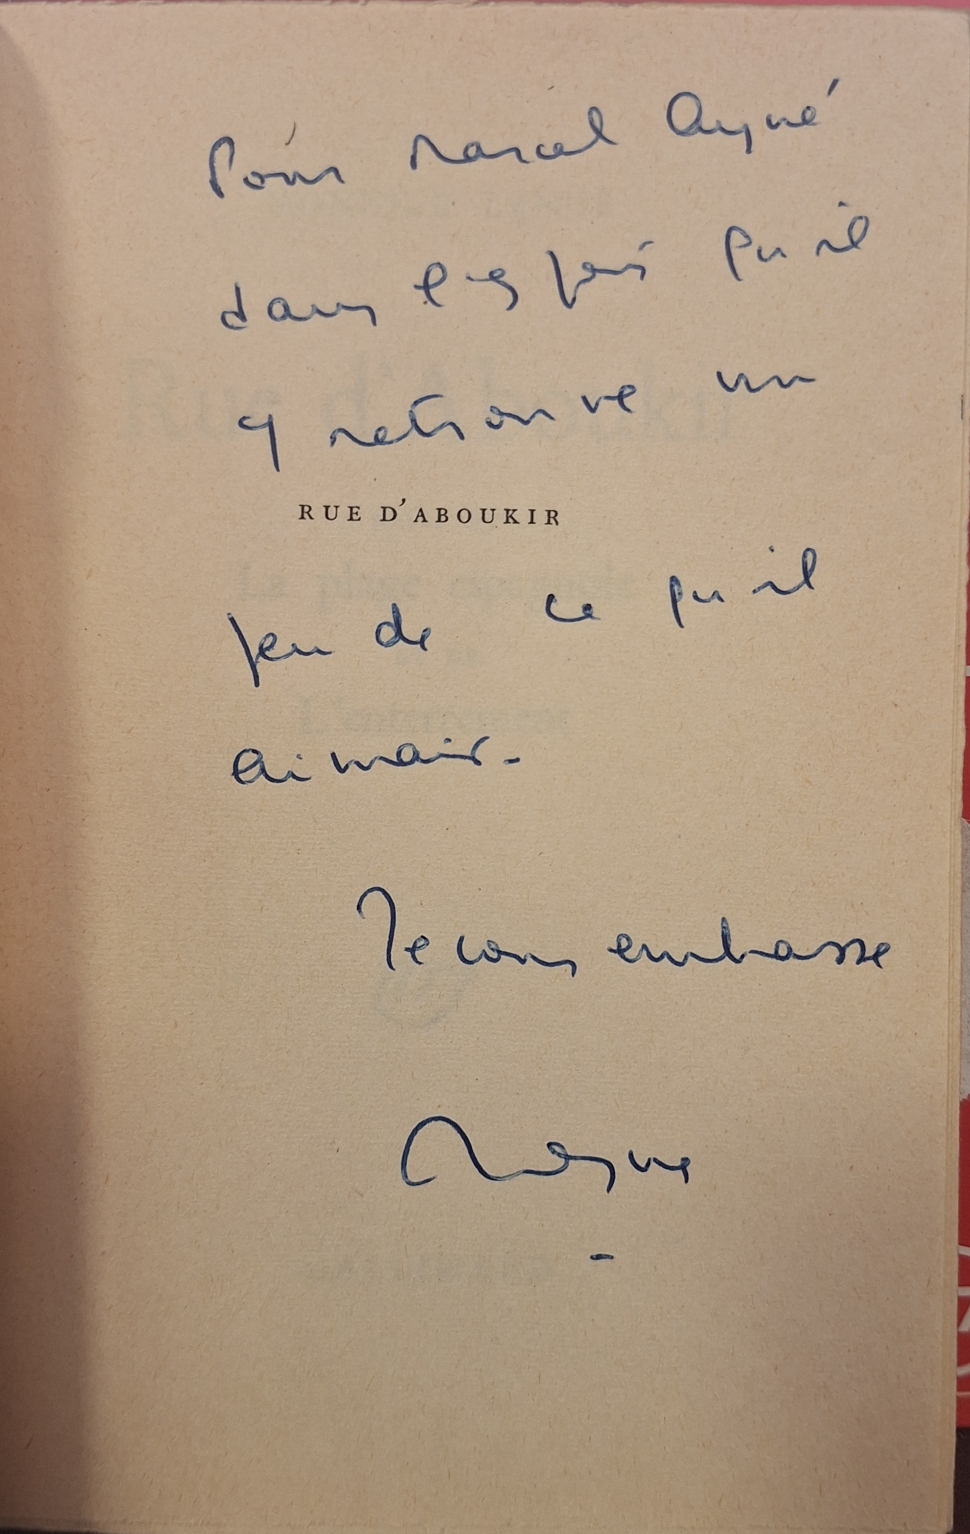 Pour Marcel Aymé
dans l'espoir qu'il
y retrouve un
RUE D'ABOUKIR
peu de ce qu'il
aimait.
Je vous embrasse